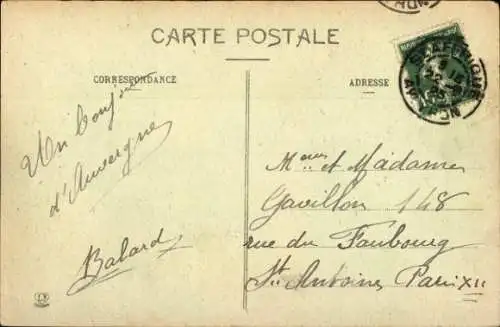 CARTE POSTALE
CORRESPONDANCE
ADRESSE
Un bonjour
d'Auvergne
Balard
St AFFRIQUE
AVEYRON
et Madame
Gavillon 148
rue du Faubourg
St. Antoine Paris XII